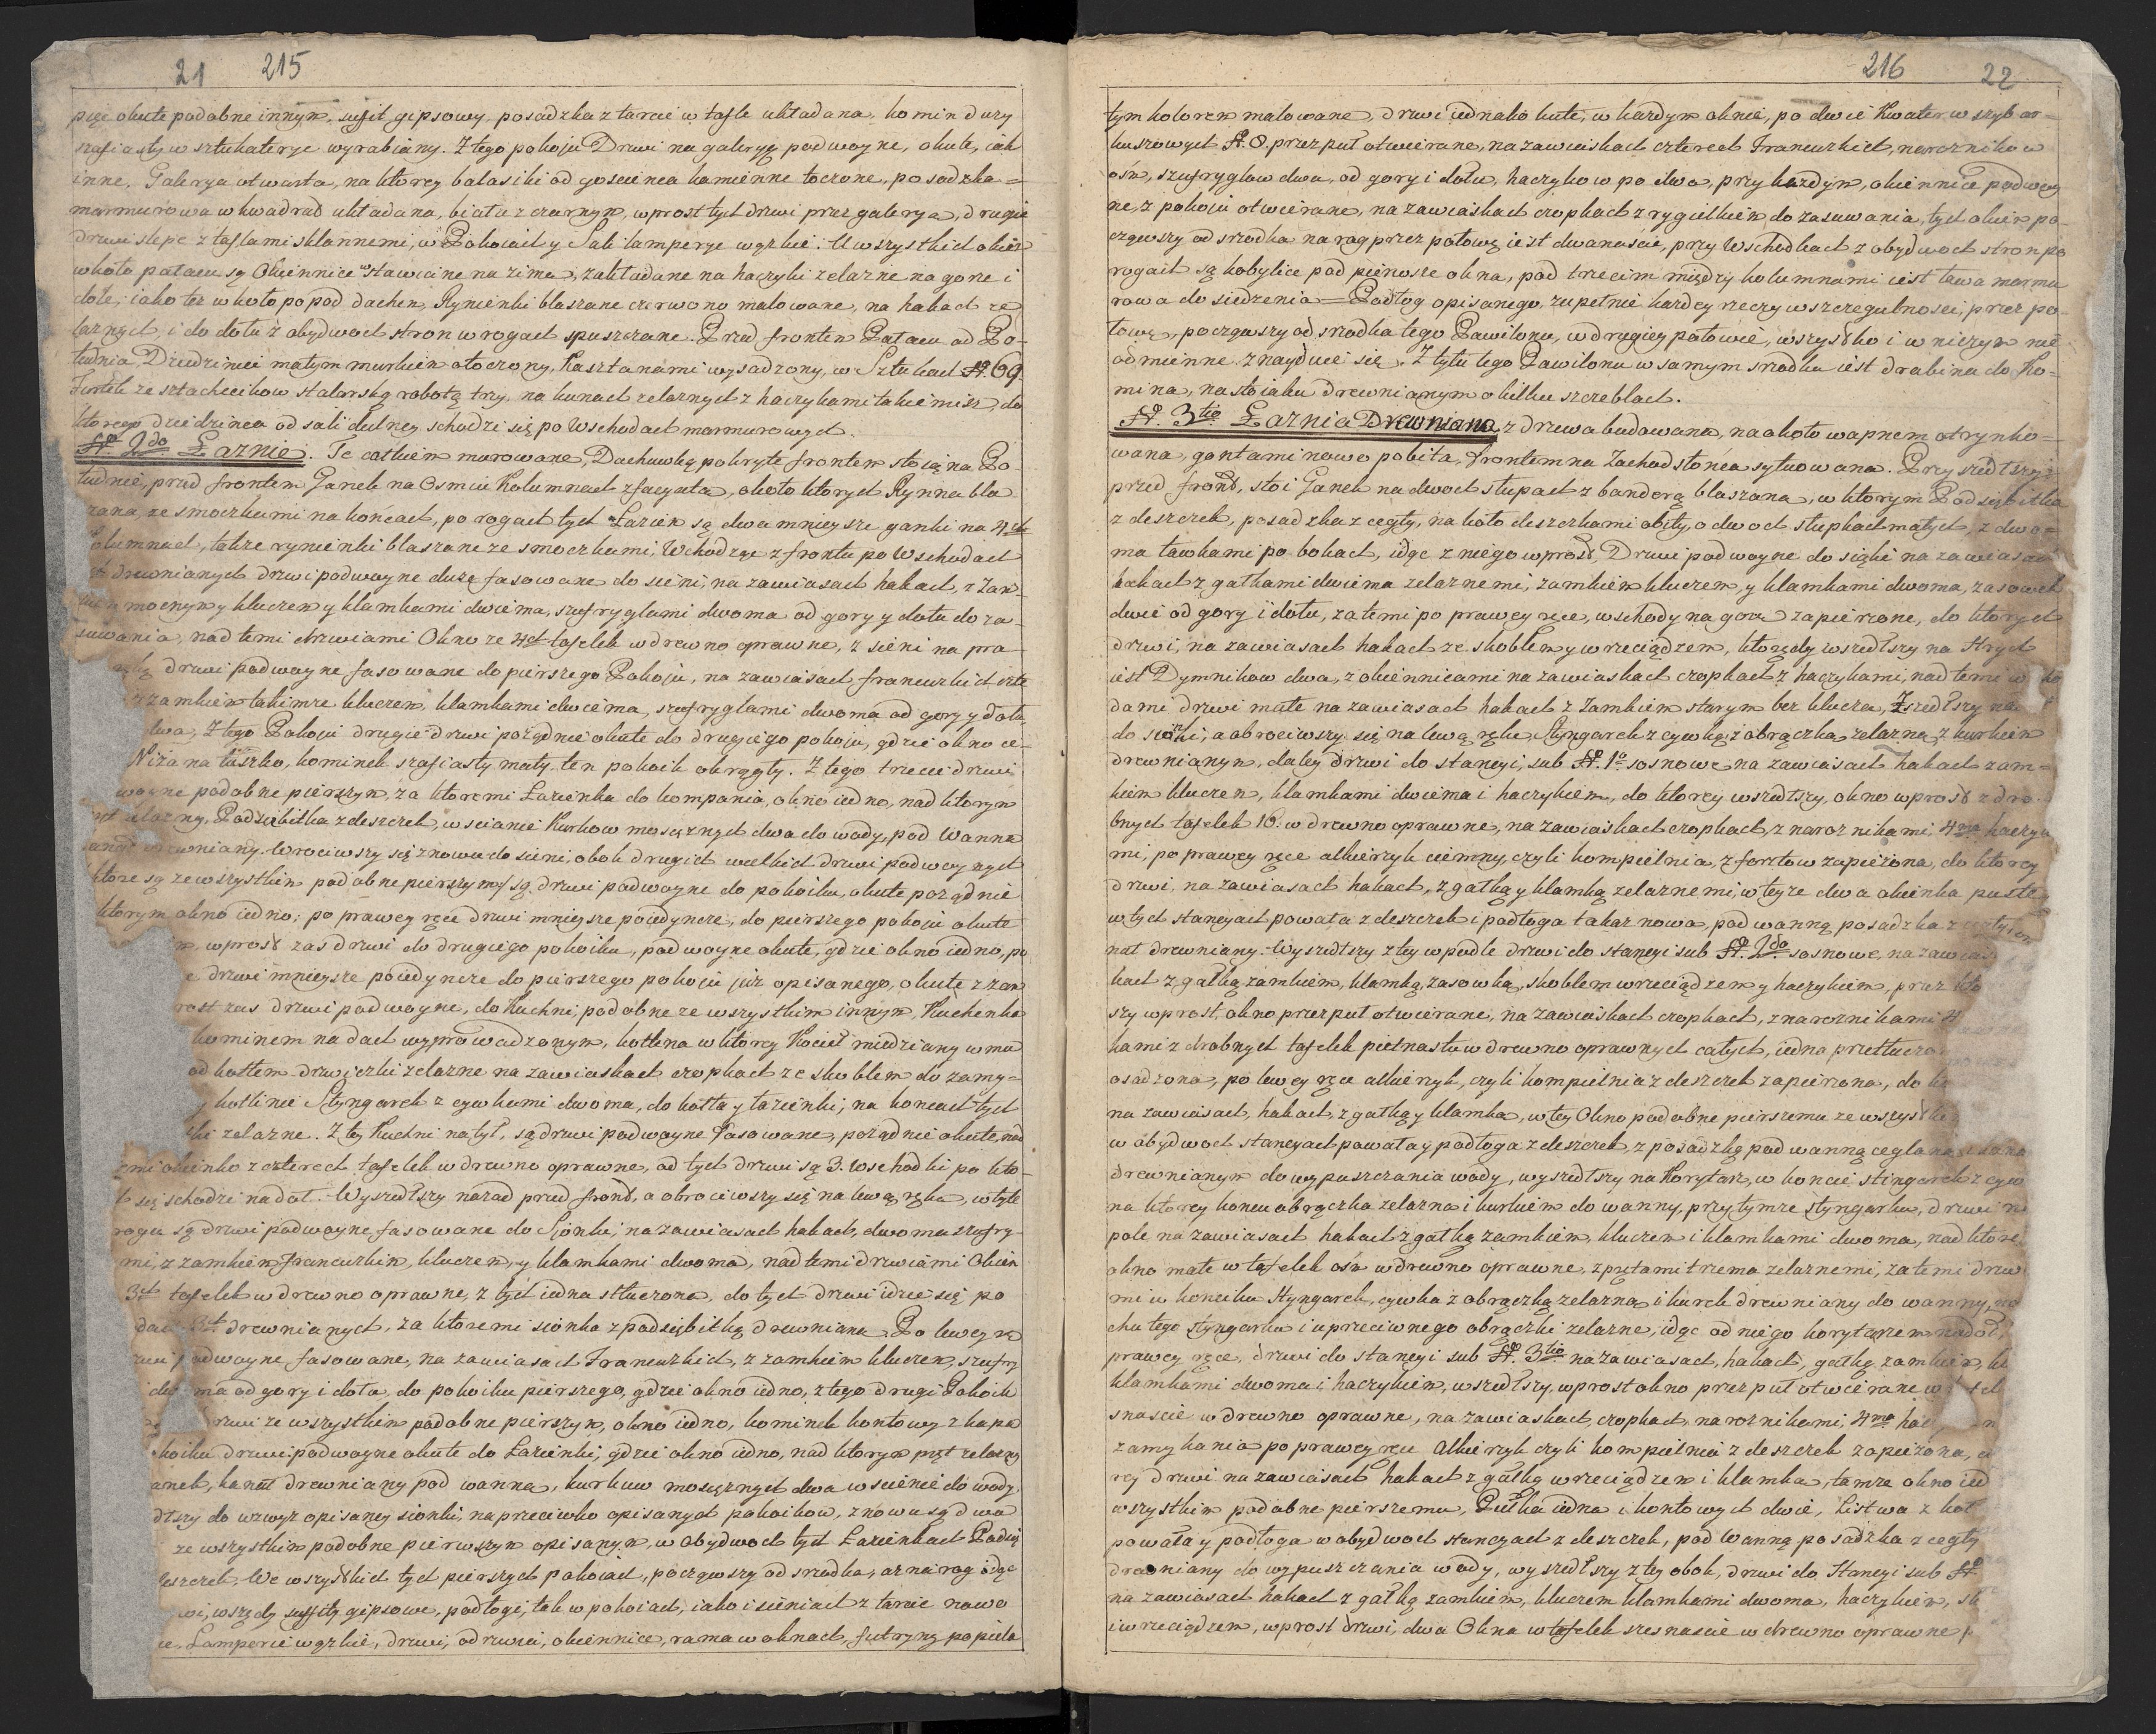 21 215
pięc okute podobne innym. suffit gipsowy, posadzka z tarcic w tafle układana, komin duży
szafiasty w sztukaterye wyrabiany. Z tego pokoju Drzwi na galeryę podwoyne, okute, iak
inne. Galerya otwarta, na ktorey balasiki od goscinca kamienne toczone, posadzka =
marmurowa w kwadrad układana, biała z czarnym, wprost tych drzwi przez galerya, drugie
drzwi slepe z taflami sklannemi, w Pokoiach y Sali lamperye wązkie. U wszystkich okien
wkoło pałacu są Okiennice wstawiane na zima, zakładane na haczyki zelazne na gorze i
dole, iako tez w koło popod dachem, Rynienki blaszane czerwono malowane, na hakach ze
laznych, i do dołu z obydwoch stron w rogach spuszczane. Przed frontem Pałacu od Po-
łudnia Dziedziniec małym murkiem otoczony, Kasztanami wysadzony, w Sztukach № 69.
Furtek ze sztachecikow stolarską robotą trzy, na kunach zelaznych z haczykami takiemisz, do
ktorego dziedzinca od sali dulney schodzi się po Wschodach marmurowych.
№ 2do Łaznie. Te całkiem murowane, Dachuwką pokryte frontem stoią na Po-
łudnie, przed frontem Ganek na Osmiu Kolumnach z facyata, około ktorych Rynna bla
zana, ze smoczkami na końcach, po rogach tych Łazien są dwa mnieysze ganki na 4ch
olumnach, takze rynienki blaszane ze smoczkami, Wchodząc z frontu po Wschodach
drewnianych drzwi podwoyne duże fasowane do sieni, na zawiasach hakach, z Zam
mocnym y kluczem y klamkami dwiema, szufryglami dwoma od gory y dołu do za-
suwania, nad temi drzwiami Okno ze 4ch tafelek w drewno oprawne, z sieni na pra
drzwi podwoyne fasowane do pierszego Pokoju, na zawiasach francuzkich czte
z zamkiem takimze kluczem, klamkami dwiema, szufryglami dwoma od gory y dołu
Z tego Pokoju drugie drzwi porządnie okute do drugiego pokoju, gdzie okno ie-
Niża na łóżko, kominek szafiasty mały. ten pokoik okrągły. Z tego trzecie drzwi
woyne podobne pierszym, za ktoremi Łazienka do kompania, okno iedno, nad ktorym
zelazny, Podsiębitka z deszczek, w scianie Kurkow mosiąznych dwa do wody, pod Wanna
drewniany. Wrociwszy się znowu do sieni, obok drugich wielkich drzwi podwoynych
ktore są ze wszystkim podobne pierszym są drzwi podwoyne do pokoiku, okute porządnie
ktorym okno iedno; po prawey ręce drzwi mnieysze poiedyncze, do pierszego pokoju okute
wprost zas drzwi do drugiego pokoiku, podwoyne okute, gdzie okno iedno, po
drzwi mnieysze poiedyncze do pierszego pokoju już opisanego, okute z zam
rost zas drzwi podwoyne, do Kuchni, podobne ze wszystkim innym, Kuchenka
kominem na dach wyprowadzonym, kotlina w ktorey Kocieł miedziany wmu
od kotłem drzwiczki zelazne na zawiaskach czopkach ze skoblem do zamy=
kotlinie Styngarek z cywkami dwoma, do kotła y łazienki; na koncach tych
ki zelazne. Z tey Kuchni na tył, są drzwi podwoyne fasowane, porządnie okute, nad
mi okienko z czterech tafelek w drewno oprawne, od tych drzwi są 3. Wschodki po kto-
się schodzi na doł. Wyszedłszy nazad przed frond, a obrociwszy się na lewą rękę, w tyle
rogu są drzwi podwoyne, fasowane do Sionki, na zawiasach hakach, dwoma szufry-
mi, z zamkiem francuzkim, kluczem, y klamkami dwoma, nad temi drzwiami Okien
3ch tafelek w drewno oprawne, z tych iedna stłuczona, do tych drzwi idzie się po
3ch drewnianych, za ktoremi sionka z podsiębitką drewniana. Po lewey rę
podwoyne fasowane, na zawiasach Francuzkich, z zamkiem kluczem, szufry
ma od gory i dołu, do pokoiku pierszego, gdzie okno iedno, z tego drugi Pokoik
drzwi ze wszystkim podobne pierszym, okno iedno, kominek kontowy z kapa
okoiku drzwi podwoyne okute do Łazienki, gdzie okno iedno, nad ktorym pręt zelazny
anek, kanał drewniany pod wanna, kurkuw mosiąznych dwa w scienie do wody.
dłszy do wzwyz opisaney sionki, naprzeciwko opisanych pokoikow, znowu są dwa
ze wszystkim podobne pierwszym opisanym, w Obydwoch tych Łazienkach Podsię
deszczek, We wszystkich tych pierszych pokoiach, począwszy od srodka, az na rog idąc
wi, wszędy suffity gipsowe, podłogi, tak w pokoiach, iako i sieniach z tarcic nowo
ie, Lamperie wązkie, drzwi, odrzwi, okiennice, rama w oknach, futryny popiela
216 22
tym kolorem malowane, drzwi iednako kute, w kazdym oknie, po dwie Kwater, w szyb ar=
kuszowych № 8. przez puł otwierane, na zawiaskach czterech Francuzkich, naroznikow
ośm, szufryglow dwa, od gory i dołu, haczykow po dwa, przy każdym, okiennice podwoy
ne, z pokoju otwierane, na zawiaskach czopkach z rygielkiem do zasuwania, tych okien po
cząwszy od srodka na rog przez połowę iest dwanascie, przy Wschodkach z obydwoch stron po
rogach są kobylice pod pienosze okna, pod trzecim między kolumnami iest ława marmu
rowa do siedzenia = Podłog opisanego, zupełnie kazdey rzeczy w szczegulnosci, przez po
łowę, począwszy od srodka tego Pawilonu, w drugiey połowie, wszystko i w niczym nie
odmienne znayduie się. Z tyłu tego Pawilonu w samym srodku iest drabina do Ko=
mina, na stoiaku drewnianym o kilku szczeblach.
№ 3tio Łaznia Drewniana, z drzewa budowana, naokoło wapnem otrynko=
wana, gontami nowo pobita, frontem na Zachod słońca sytuowana. Przyszedłszy
przed frond, stoi Ganek na dwoch słupach z banderą blaszana, w ktorym Podsiębitka
z deszczek, posadzka z cegły, na koło deszczkami obity, o dwoch słupkach małych, z dwo=
ma ławkami po bokach, idąc z niego wprost, Drzwi podwoyne do siąki na zawiasach
hakach z gałkami dwiema zelaznemi, zamkiem kluczem, y klamkami dwoma, zasowek
dwie od gory i dołu, za temi po prawey ręce, wschody na gorę zapierzone, do ktorych
drzwi, na zawiasach hakach ze skoblem y wrzeciądzem, ktorędy wszedłszy na Strych
iest Dymnikow dwa, z okiennicami na zawiaskach czopkach z haczykami, nad temi w
dami drzwi małe na zawiasach hakach z Zamkiem starym bez klucza, Zszedłszy na
do sionki, a obrociwszy się na lewą rękę, Styngarek z cywką, z obrączka zelazną, z kurkiem
drewnianym, daley drzwi do stancyi, sub № 1o sosnowe na zawiasach hakach zam=
kiem kluczem, klamkami dwiema i haczykiem, do ktorey wszedłszy, okno wprost z dro=
bnych tafelek 16. w drewno oprawne, na zawiaskach czopkach, z naroznikami 4ma haczyk
mi, po prawey ręce alkierzyk ciemny, czyli kompielnia, z forsztow zapierzona, do ktorey
drzwi, na zawiasach hakach, z gałką y klamką zelaznemi, w teyze dwa okienka puste
w tych stancyach powała z deszczek i podłoga takaz nowa, pod wanną posadzka z cegły
nał drewniany. Wyszedłszy z tey w podle drzwi do stancyi sub № 2do sosnowe, na zawias
kach z gałką zamkiem, klamką, zasowką, skoblem wrzeciądzem y haczykiem, przez kto
szy wprost, okno przez puł otwierane, na zawiaskach czopkach, z naroznikami 4
kami z drobnych tafelek pietnastu w drewno oprawnych całych, iedna przetłuczo
osadzona, po lewey ręce alkierzyk, czyli kompielnia z deszczek zapierzona, do kt
na zawiasach, hakach, z gałką y klamka, w tey Okno podobne pierszemu ze wszystki
w obydwoch stancyach powała y podłoga z deszczek, z posadzką pod wanną ceglana
drewnianym do wypuszczania wody, wyszedłszy na Korytarz, w koncie stingarek z cyw
na ktorey koncu obrączka zelazna i kurkiem do wanny, przy tymze styngarku, drzwi n
pole na zawiasach hakach z gałką zamkiem, kluczem i klamkami dwoma, nad ktore
okno małe w tafelek ośm w drewno oprawne, z prętami trzema zelaznemi, za temi drzw
mi w konciku Styngarek, cywka z obrączką zelazną i kurek drewniany do wanny, na
chu tego styngarku i u przeciwnego obrączki zelazne, idąc od niego korytarzem nadoł,
prawey ręce, drzwi do stancyi sub № 3tio na zawiasach, hakach, gałką zamkiem, kl
klamkami dwoma i haczykiem, wszedłszy, wprost okno przez puł otwierane w
snascie w drewno oprawne, na zawiaskach czopkach, naroznikami, 4ma hac
zamykania po prawey ręce Alkierzyk czyli kompielnia z deszczek zapieżona,
rey drzwi na zawiasach hakach z gałką wrzeciądzem i klamka, tamze okno ied
wszystkim podobne pierszemu, Pułka iedna i kontowych dwie, Listwa z koł
powała y podłoga w obydwoch stancyach z deszczek, pod Wanną posadzka z cegły
drewniany do wypuszczania wody, wyszedłszy z tey obok, drzwi do Stancyi sub №
na zawiasach hakach z gałką zamkiem, kluczem klamkami dwoma, haczykiem, sk
i wrzeciądzem, wprost drzwi, dwa Okna w tafelek szesnascie w drewno oprawne